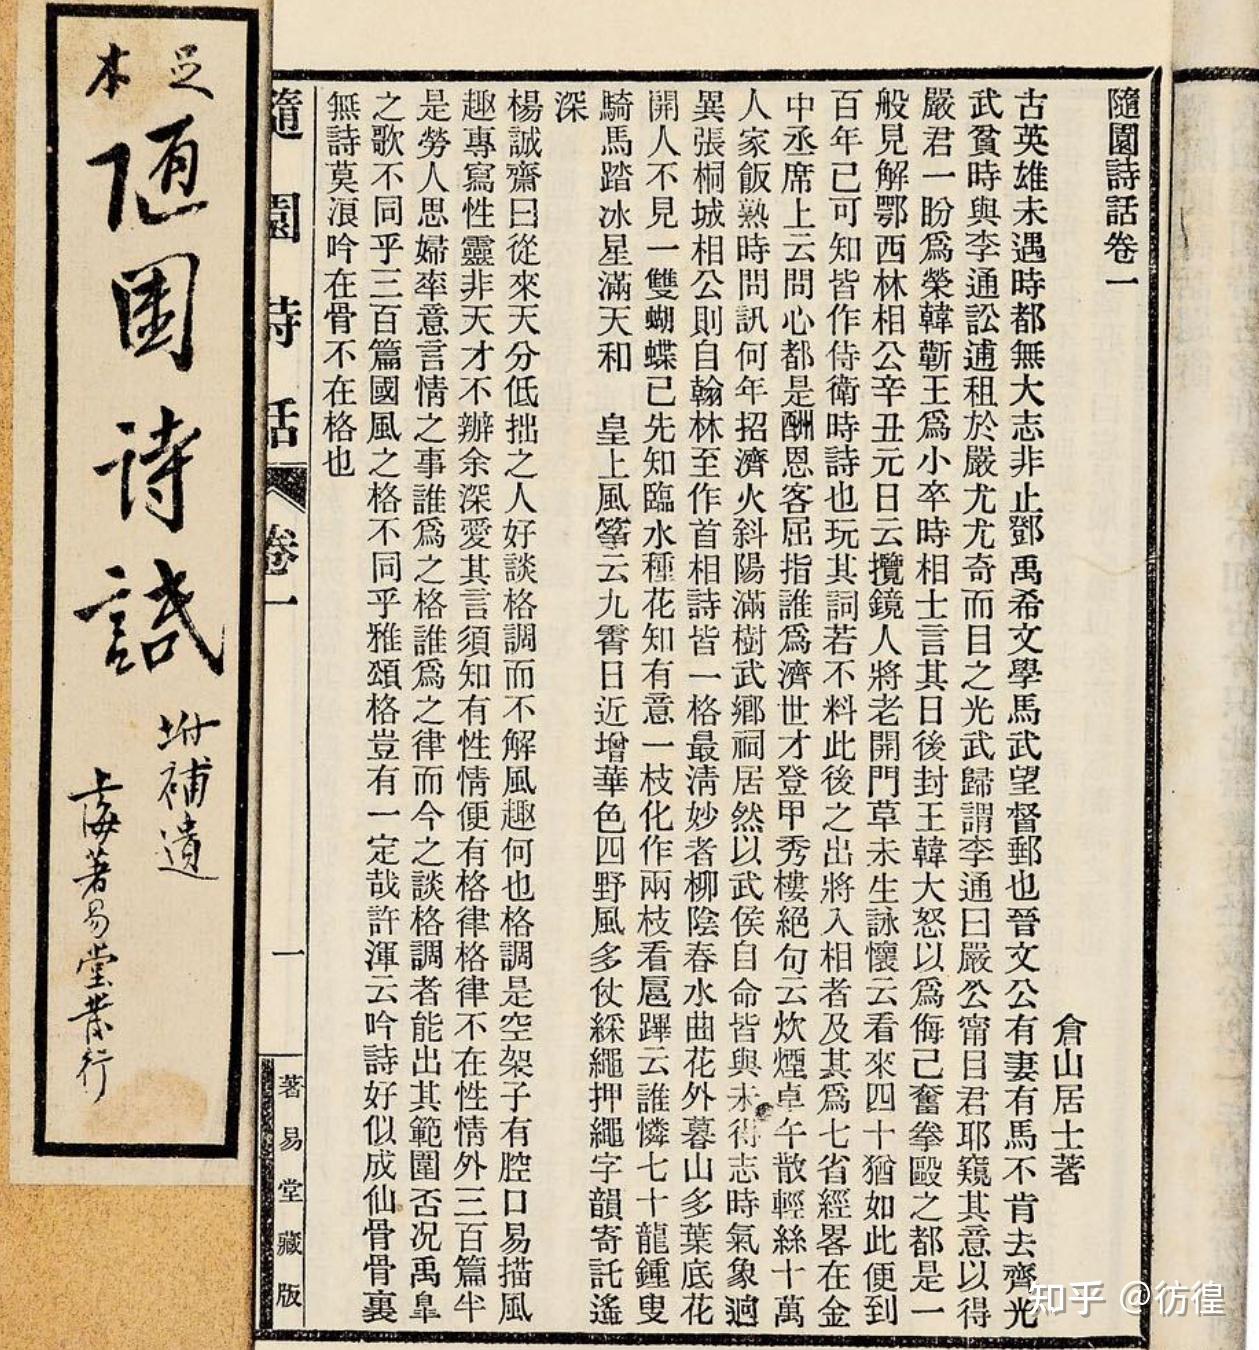 隨園詩話卷一
倉山居士著
古英雄未遇時都無大志非止鄧禹希文學馬武望督郵也晉文公有妻有馬不肯去齊光
武貧時與李通訟逋租於嚴尤尤奇而目之光武歸謂李通曰嚴公甯目君耶窺其意以得
嚴君一盼爲榮韓蘄王爲小卒時相士言其日後封王韓大怒以爲侮己奮拳毆之都是一
般見解鄂西林相公辛丑元日云攬鏡人將老開門草未生詠懷云看來四十猶如此便到
百年已可知皆作侍衛時詩也玩其詞若不料此後之出將入相者及其爲七省經畧在金
中丞席上云問心都是酬恩客屈指誰爲濟世才登甲秀樓絕句云炊煙卓午散輕絲十萬
人家飯熟時問訊何年招濟火斜陽滿樹武鄉祠居然以武侯自命皆與未得志時氣象逈
異張桐城相公則自翰林至作首相詩皆一格最淸妙者柳陰春水曲花外暮山多葉底花
開人不見一雙蝴蝶已先知臨水種花知有意一枝化作兩枝看扈蹕云誰憐七十龍鍾叟
騎馬踏冰星滿天和 皇上風箏云九霄日近增華色四野風多仗綵繩押繩字韻寄託遙
深
楊誠齋曰從來天分低拙之人好談格調而不解風趣何也格調是空架子有腔口易描風
趣專寫性靈非天才不辦余深愛其言須知有性情便有格律格律不在性情外三百篇半
是勞人思婦率意言情之事誰爲之格誰爲之律而今之談格調者能出其範圍否况禹臯
之歌不同乎三百篇國風之格不同乎雅頌格豈有一定哉許渾云吟詩好似成仙骨骨裏
無詩莫浪吟在骨不在格也
隨園詩話 卷一 一 著易堂藏版
足本
隨園詩話
坿補遺
上海著易堂發行
知乎 @彷徨